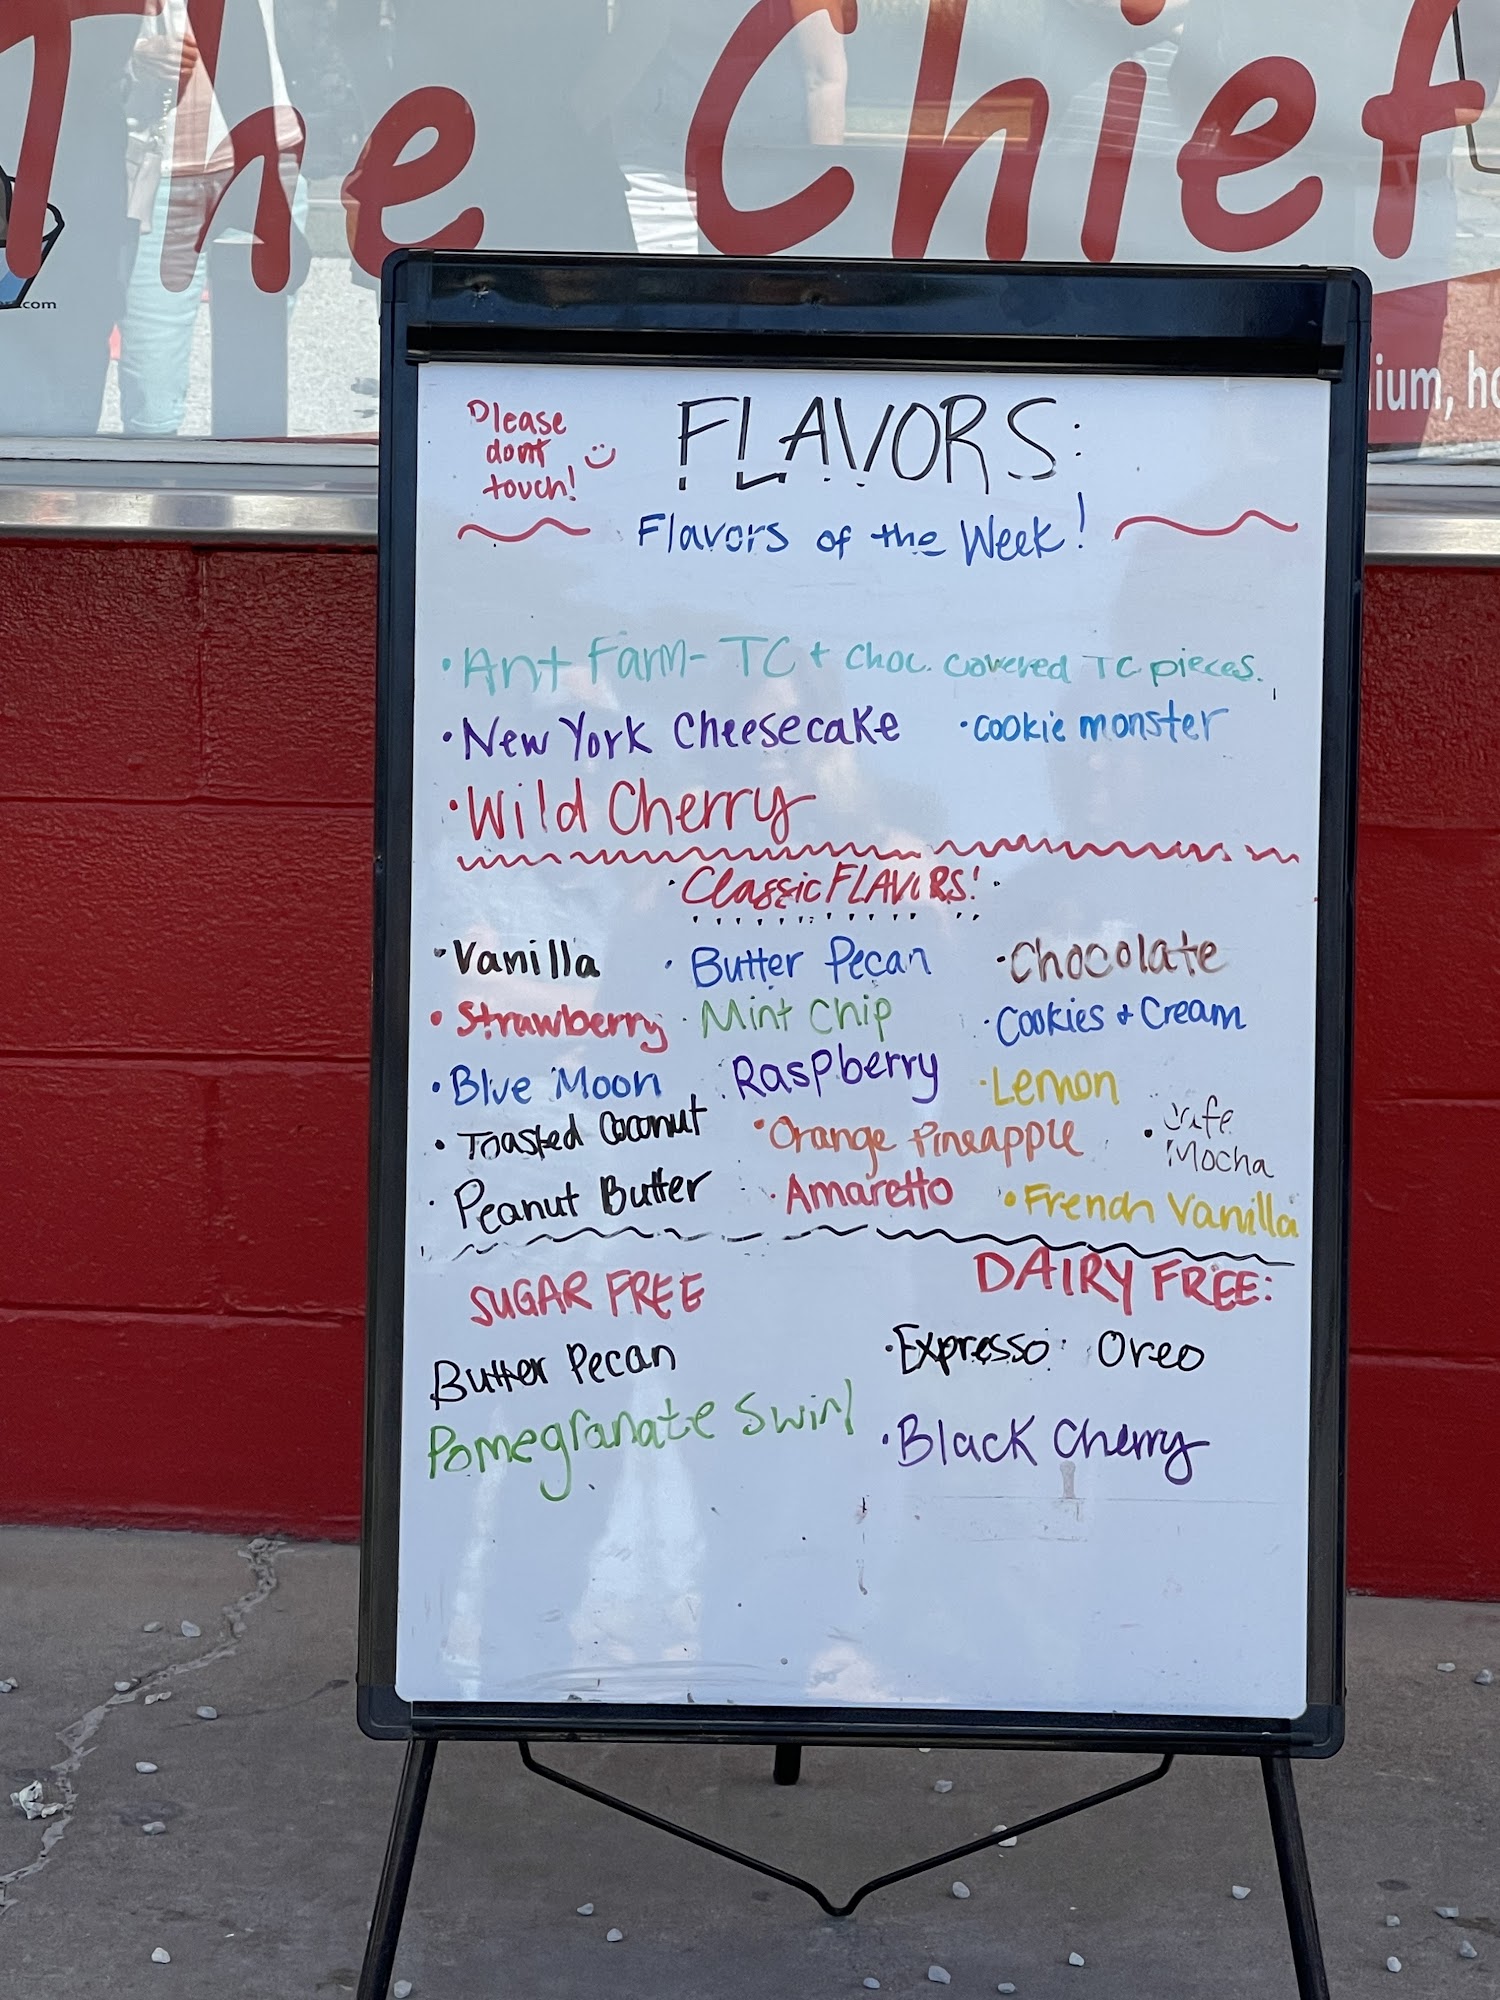 The Chief
.com
ium, ho
Please
dont
touch!
FLAVORS:
Flavors of the Week!
• Ant Farm - TC + Choc. covered TC pieces.
• New York Cheesecake • Cookie monster
• Wild Cherry
• Classic FLAVORS! •
• Vanilla • Butter Pecan • Chocolate
• Strawberry • Mint Chip • Cookies + Cream
• Blue Moon • Raspberry • Lemon
• Toasted Coconut • Orange Pineapple • Cafe
Mocha
• Peanut Butter • Amaretto • French Vanilla
SUGAR FREE
Butter Pecan
Pomegranate Swirl
DAIRY FREE:
• Expresso • Oreo
• Black Cherry